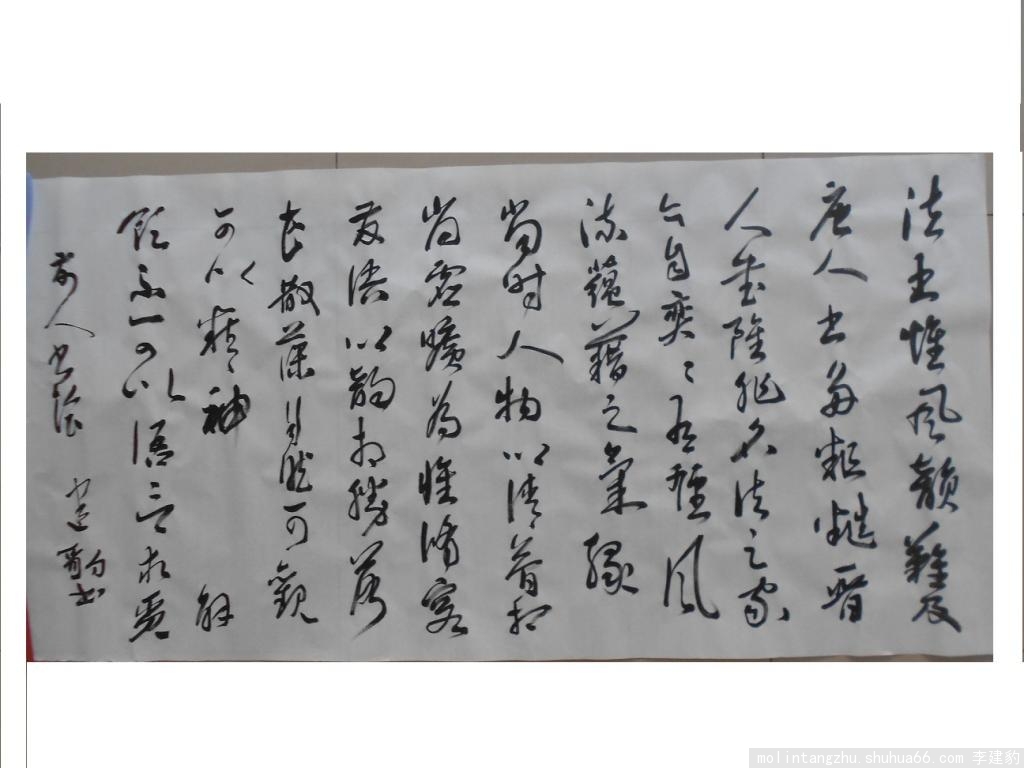 法书惟风韵難及
唐人书多粗糙晋
人书雖非名法之家
亦自奕々有一種风
流蕴藉之氣缘
当时人物以清简相
尚虚曠为怀修容
发语以韵相勝落
花散藻自然可觀
可以精神解
领不可以语言求觅
前人书论 建豹书
molintangzhu.shuhua66.com 李建豹